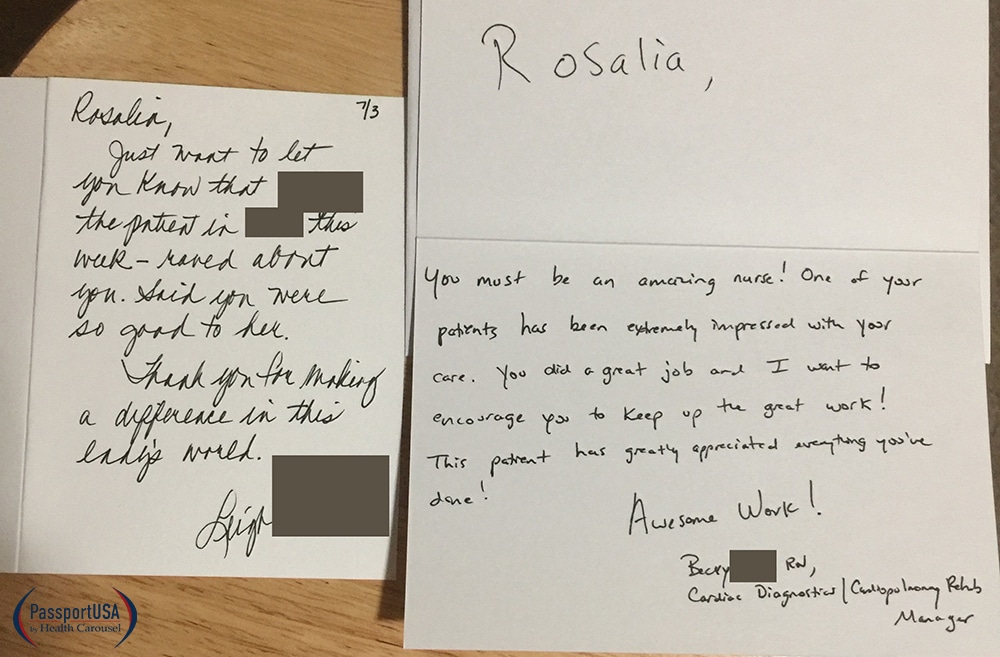 7/3
Rosalia,
Just want to let
you know that
the patient in this
week - raved about
you. Said you were
so good to her.
Thank you for making
a difference in this
lady's world.
Leigh
Rosalia,
You must be an amazing nurse! One of your
patients has been extremely impressed with your
care. You did a great job and I want to
encourage you to keep up the great work!
This patient has greatly appreciated everything you've
done!
Awesome Work!
Becky RN,
Cardiac Diagnostics/Cardiopulmonary Rehab
Manager
PassportUSA
by Health Carousel